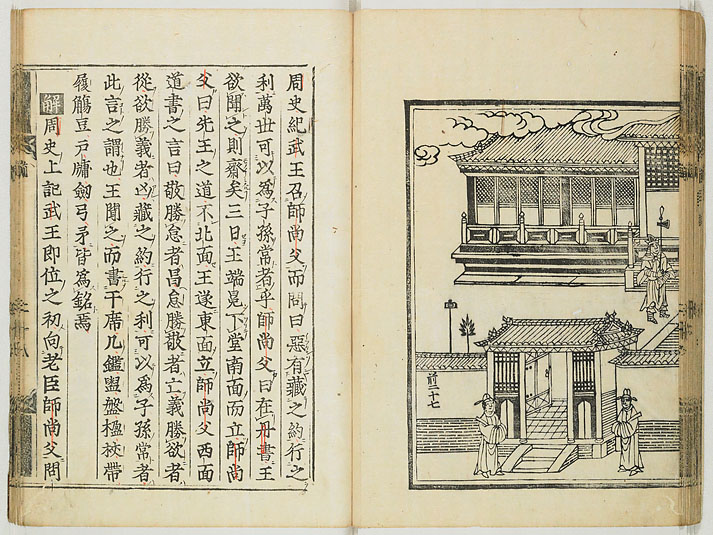 前二十七
周史紀武王召師尚父而問曰惡有藏之約行之
利萬世可以爲子孫常者乎師尚父曰在丹書王
欲聞之則齋矣三日王端冕下堂南面而立師尚
父曰先王之道不北面王遂東面立師尚父西面
道書之言曰敬勝怠者昌怠勝敬者亡義勝欲者
從欲勝義者凶藏之約行之利可以爲子孫常者
此言之謂也王聞之而書于席几鑑盥盤楹杖帶
履觴豆戸牖劒弓矛皆爲銘焉
解周史上記武王即位之初向老臣師尚父問